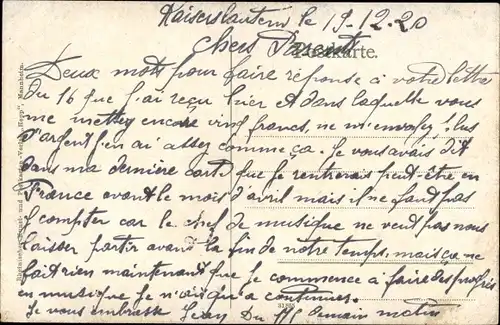 Kaiserslautern le 19-12-20
Chers Parents
Postkarte.
Deux mots pour faire réponse à votre lettre
du 16 que j'ai reçu hier et dans laquelle vous
me mettez encore vingt francs, ne m'envoyez plus
d'argent j'en ai assez comme ça. Je vous avais dit
dans ma dernière carte que je rentrerais peut-être en
France avant le mois d'avril mais il ne faut pas
compter car le chef de musique ne veut pas nous
laisser partir avant la fin de notre temps, mais ça ne
fait rien maintenant que je commence à faire des progrès
en musique je n'ai qu'à continuer.
Je vous embrasse Jean
demain matin